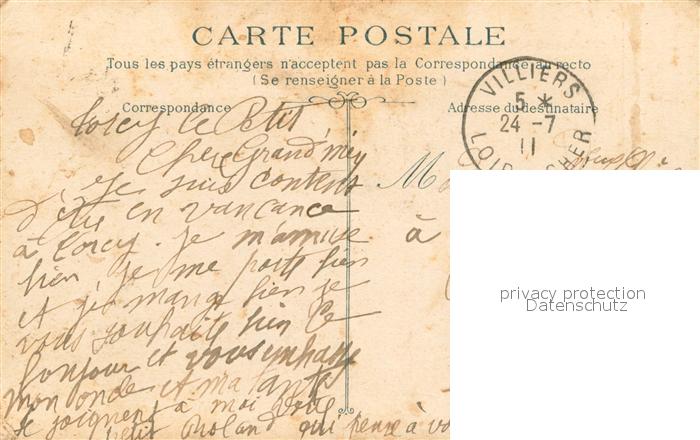 CARTE POSTALE
Tous les pays étrangers n'acceptent pas la Correspondance au recto
(Se renseigner à la Poste)
Correspondance
Adresse du destinataire
VILLIERS
5 *
24 - 7
11
LOIR CHER
Torcy le Petit
Chere Grand'mèy
Je suis content
d'être en vancance
à Torcy. Je m'amuse
bien, je me porte bien
et je mange bien je
vous souhaite bien le
bonjour et vous embrasse
mon oncle et ma tante
se joignent à moi
petit Roland qui pense à vo
M
à
privacy protection
Datenschutz